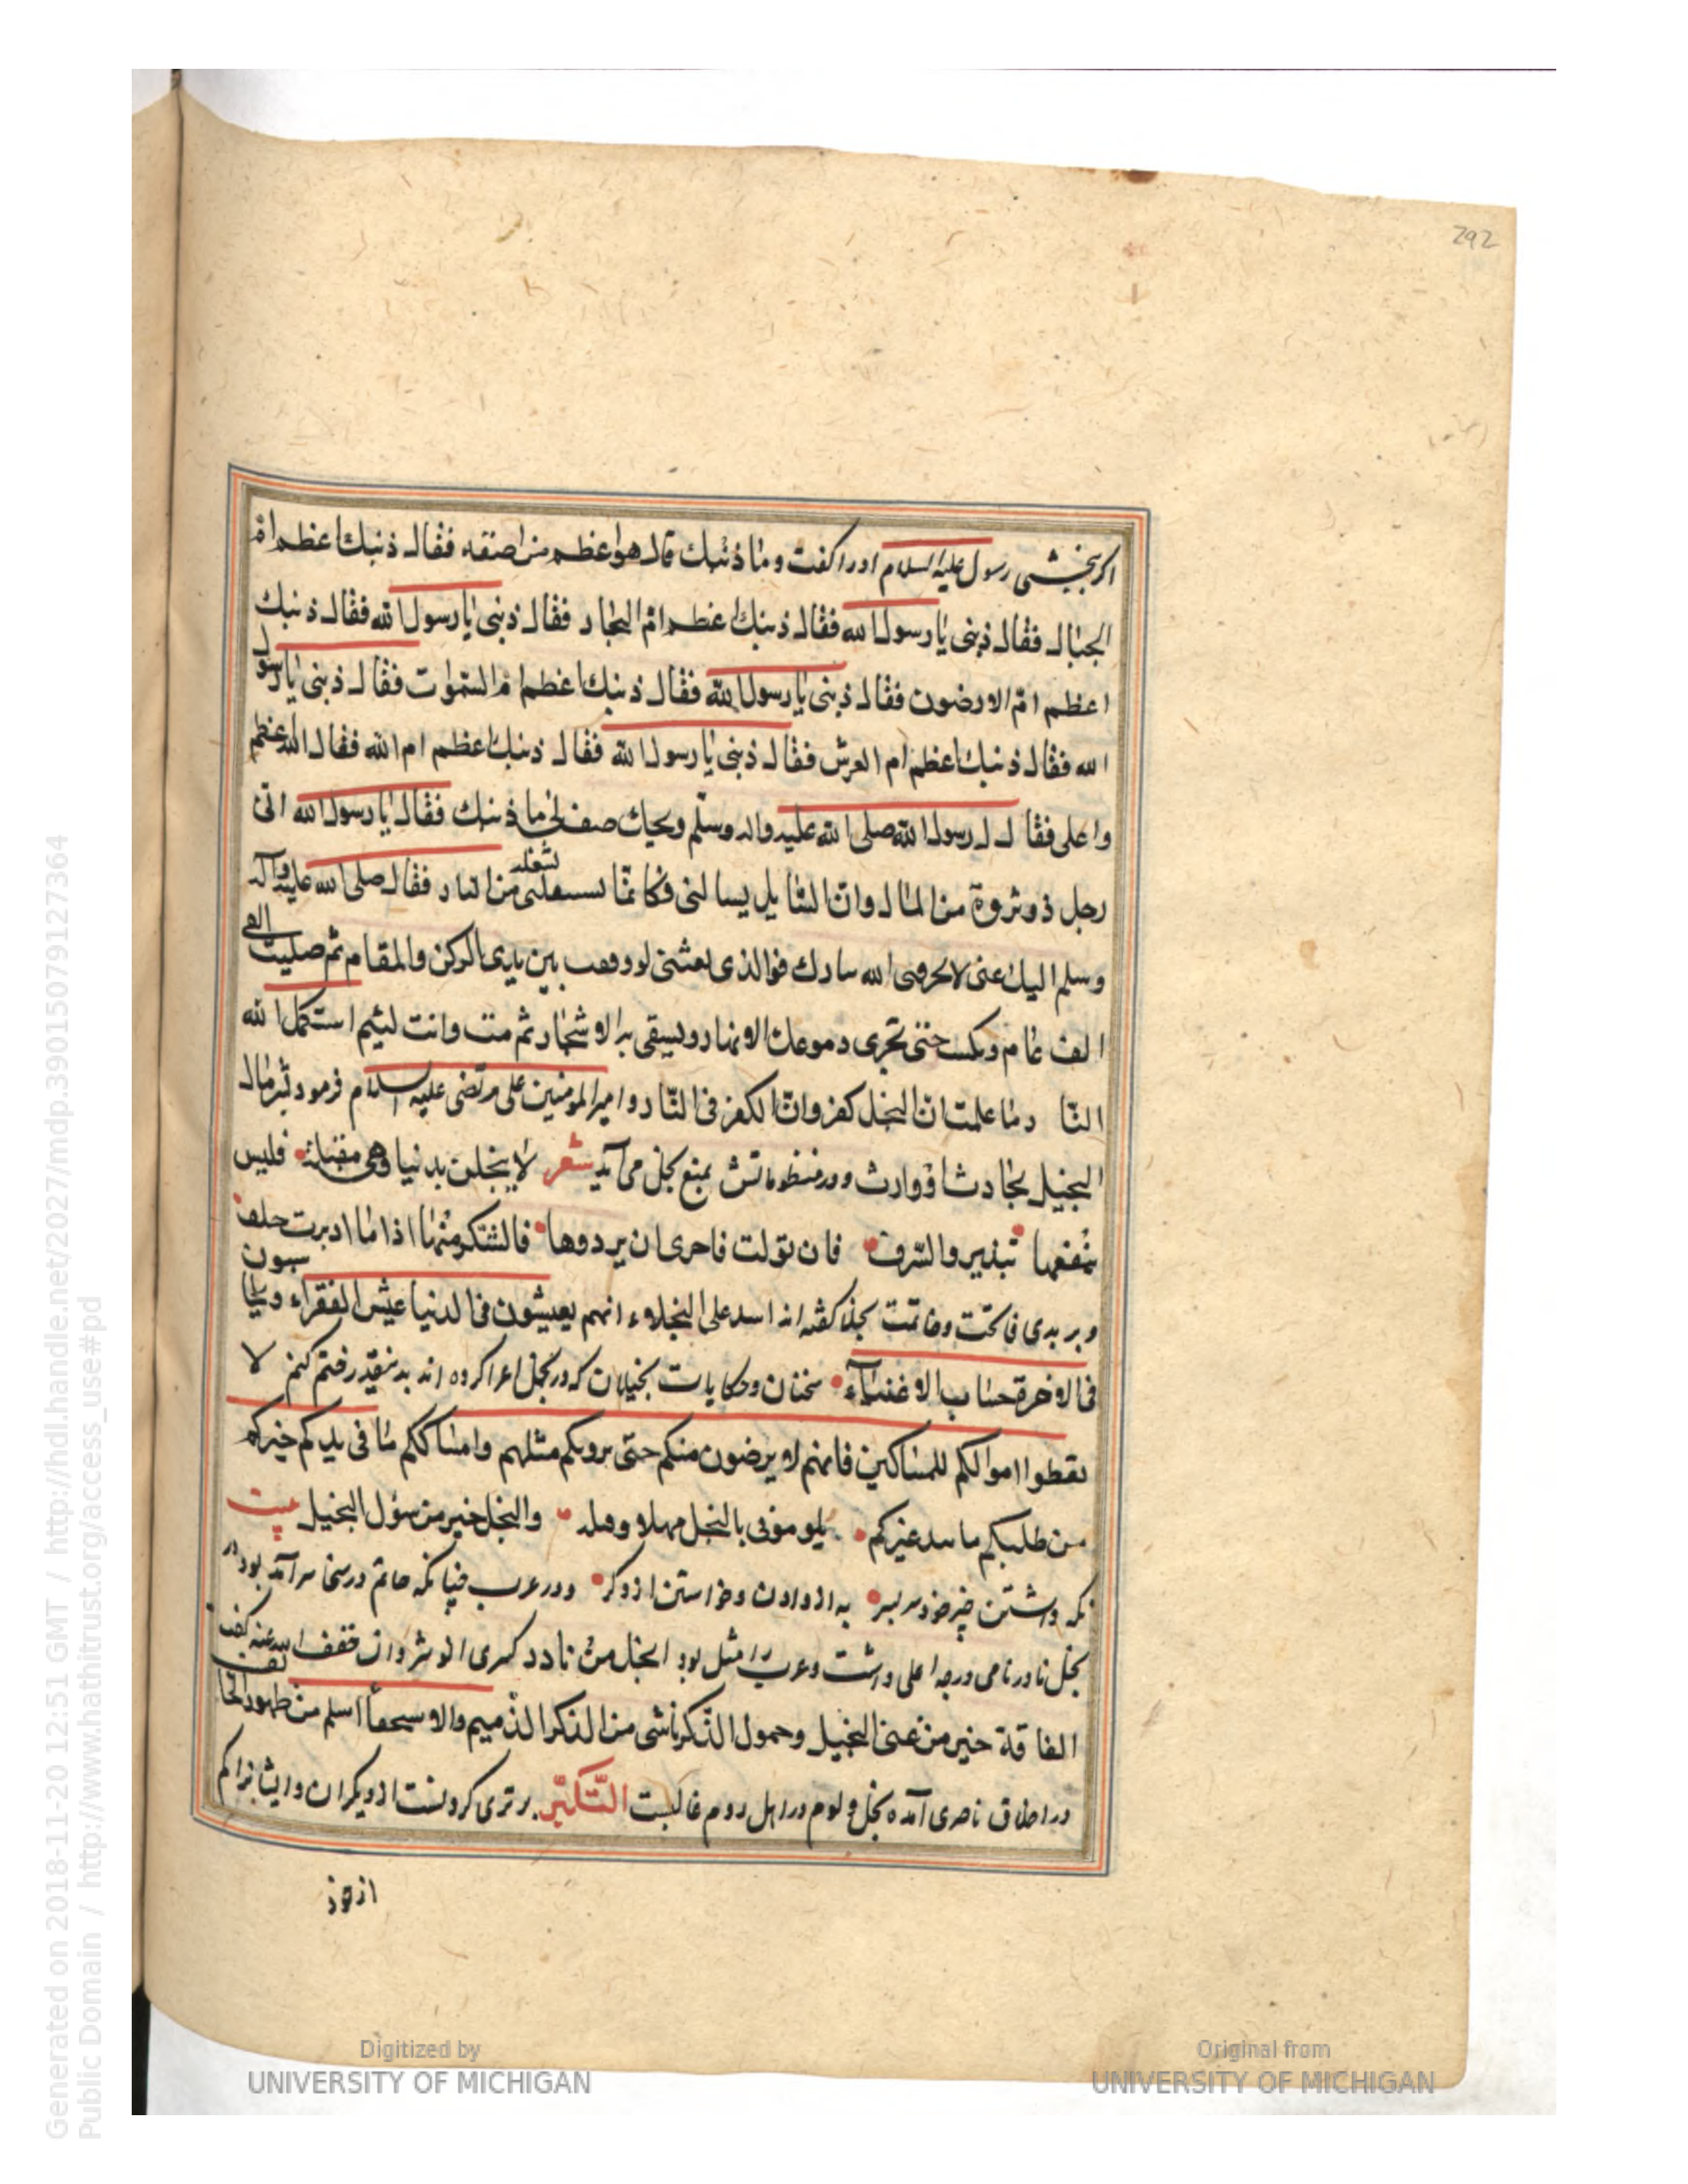 292
اکر بخشی رسول علیه السلام اورا کفت وما ذنبك قال هو اعظم من اصفه فقال ذنبك اعظم ام
الجبال فقال ذنبی یا رسول الله فقال ذنبك اعظم ام البحار فقال ذنبی یا رسول الله فقال ذنبك
اعظم ام الارضون فقال ذنبی یا رسول الله فقال ذنبك اعظم ام السموات فقال ذنبی یا رسول
الله فقال ذنبك اعظم ام العرش فقال ذنبی یا رسول الله فقال ذنبك اعظم ام الله فقال الله اعظم
واعلی فقال له رسول الله صلی الله علیه واله وسلم ویحك صف لی ما ذنبك فقال یا رسول الله انی
رجل ذو ثروة من المال وان السایل یسالنی فکانما من النار فقال صلی الله علیه وآله
وسلم الیك عنی لا بنارك فوالذی بعثنی لو وقفت بین یدی الرکن والمقام ثم صلیت الفی
الف عام وبکیت حتی تجری دموعك الانهار ویسقی بها الاشجار ثم مت وانت لئیم الله
النار وما علمت ان البخل کفر وان الکفر فی النار وامیر المومنین علی مرتضی علیه السلام فرمود بشر مال
البخیل بحادث او وارث ودر منظوماتش بمنع بخل می آید شعر لا تبخلن بدنیا وهی مقبلة فلیس
ینقصها تبذیر والسرف فان تولت فاحری ان فالشکر منها اذا ما ادبرت خلف
وبر بدی بخلا کفته اند علی البخلاء انهم یعیشون فی الدنیا عیش الفقراء ویحاسبون
فی الاخرة حساب الاغنیاء سخنان وحکایات بخیلان که در بخل کرده اند بدینقدر کنم لا
تعطوا اموالکم للمساکین فانهم لا یرضون منکم حتی یروکم مثلهم وامساککم ما فی یدیکم خیرکم
من طلبکم ما بید غیرکم یلوموننی بالبخل والبخل خیر من سؤل البخیل بیت
نکه داشتن چیز خود بسر به از دادن وخواستن از دکر ودر عرب چنانکه حاتم در سخا سرآمد بود در
بخل نادر نامی درجه اعلی داشت وعرب را مثل بود ابخل من نادر کسری انوشروان کفت
الفاقة خیر من غنی البخیل وخمول الذکر من الذکر الذمیم اسلم من
در اخلاق ناصری آمده بخل ولوم در اهل روم غالبست التکبر برتری کردنست از دیکران وایشانرا کم
از خود
Digitized by
UNIVERSITY OF MICHIGAN
Original from
UNIVERSITY OF MICHIGAN
Generated on 2018-11-20 12:51 GMT / http://hdl.handle.net/2027/mdp.39015079127364
Public Domain / http://www.hathitrust.org/access_use#pd